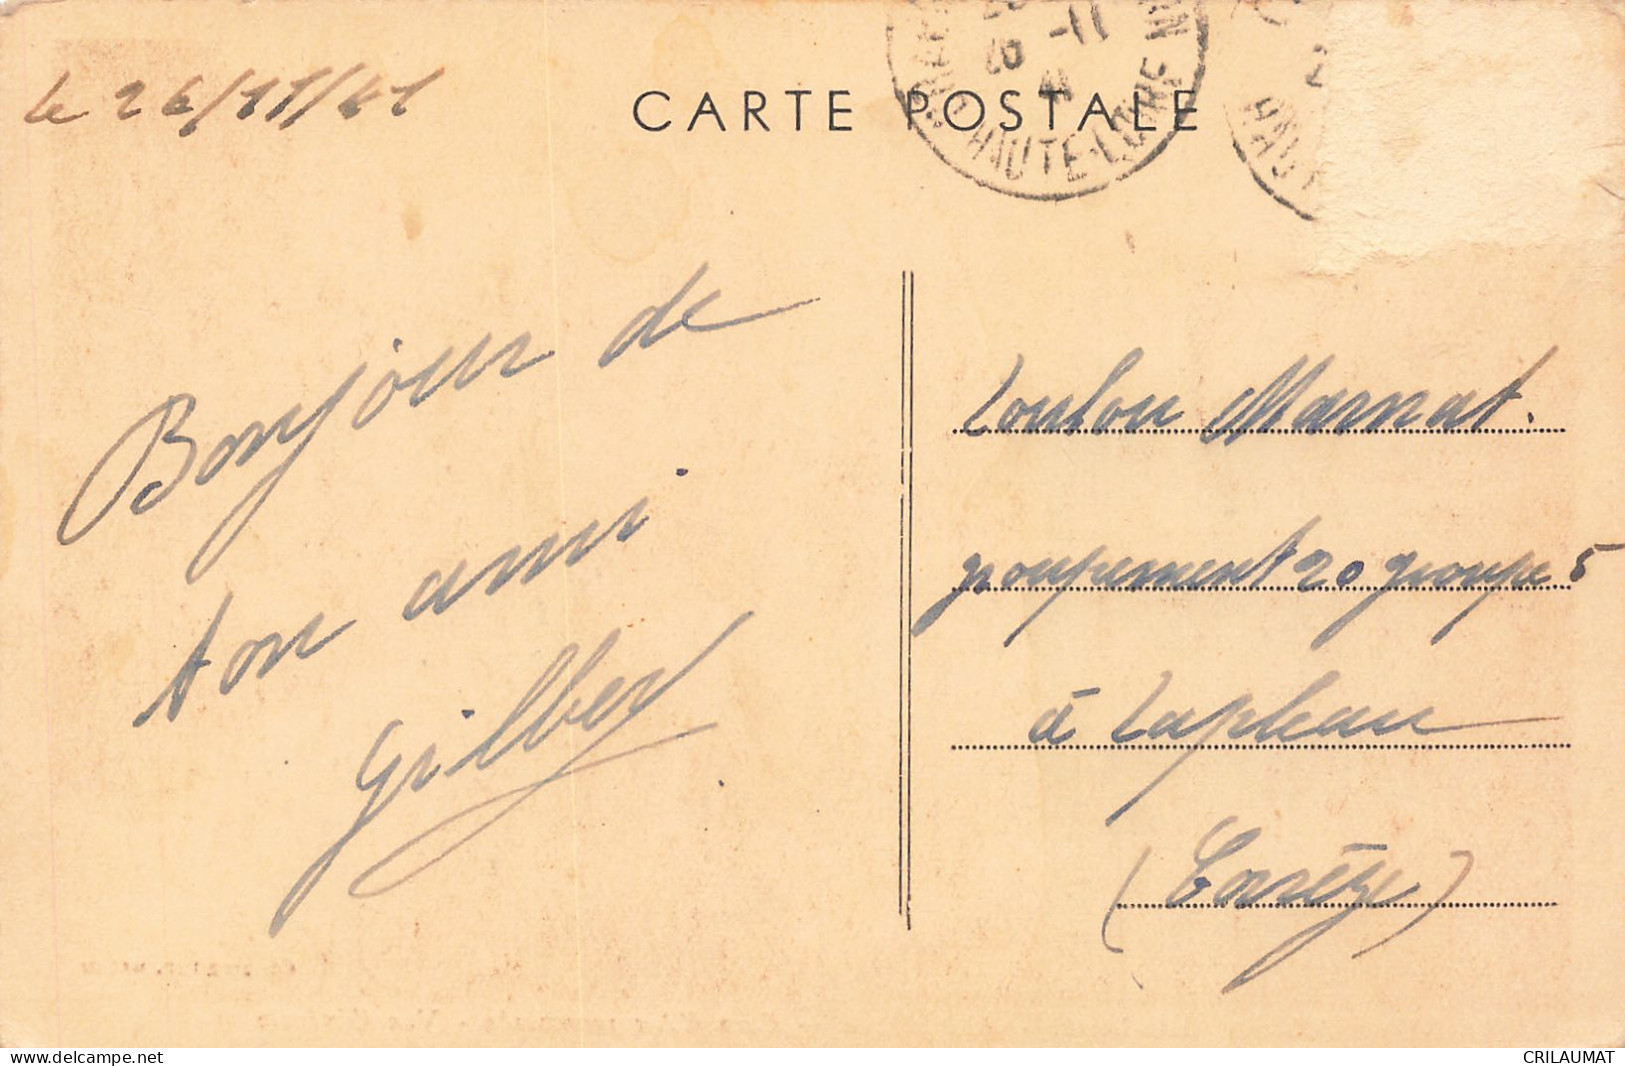 le 26/11/41
CARTE POSTALE
HAUTE-LOIRE
Bonjour de
ton ami
Gilber
Loulou Marnat.
groupement 20 groupe 5
à Lapleau
(Corrèze)
www.delcampe.net
CRILAUMAT